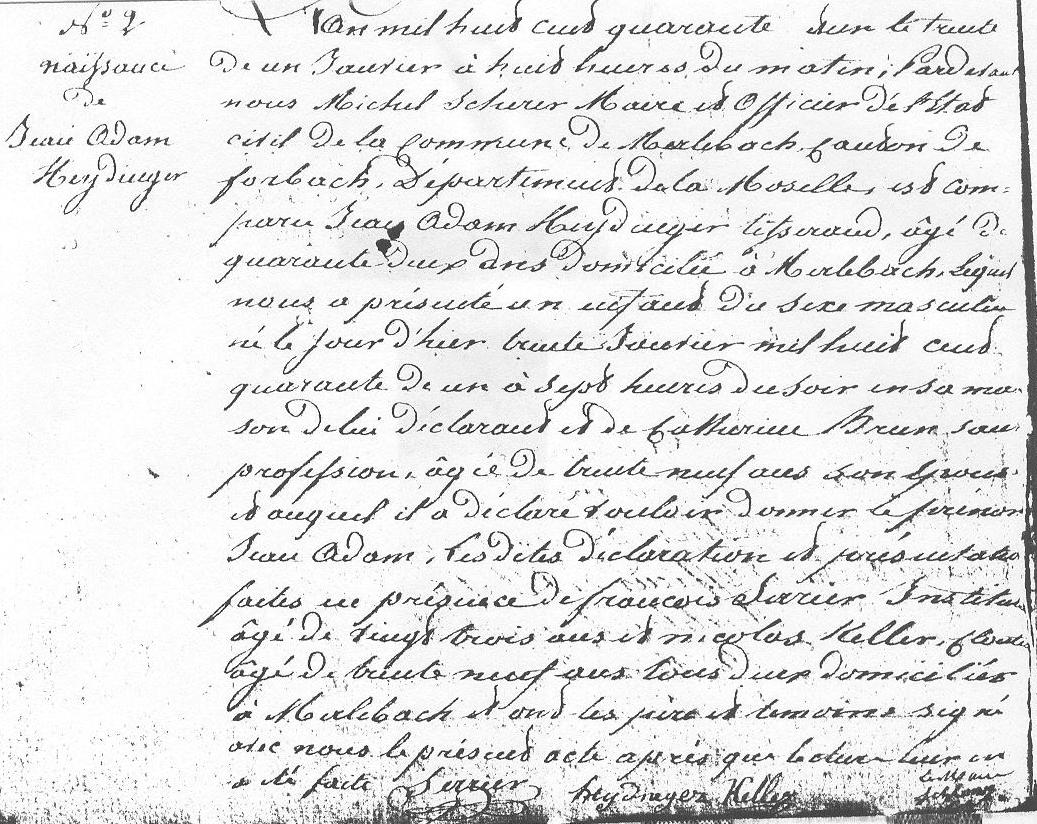 N° 2
naissance
de
Jean Adam
Heydinger
L'an mil huit cent quarante d'un le trente
de un Janvier à huit heures du matin, Pardevant
nous Michel Scherer Maire et Officier de l'Etat
civil de la Commune de Merlebach, Canton de
forbach, Département de la Moselle, est com-
paru Jean Adam Heydinger tisserand, âgé de
quarante deux ans Domicilié à Merlebach, Lequel
nous a présenté un enfant du sexe masculin
né le jour d'hier trente Janvier mil huit cent
quarante de un à sept heures du soir en sa mai
son de lui déclarant et de Catherine Brun sans
profession, âgée de trente neuf ans son Epouse
et auquel il a déclaré vouloir donner le prénom
Jean Adam, Les dites déclaration et présentation
faites en présence de françois Serrier Instituteur
âgé de vingt trois ans et nicolas Keller,
âgé de trente neuf ans tous deux domiciliés
à Merlebach et ont les père et temoins signé
avec nous le présent acte après que lecture leur en
a été faite Serrier heydineger Keller
le Maire